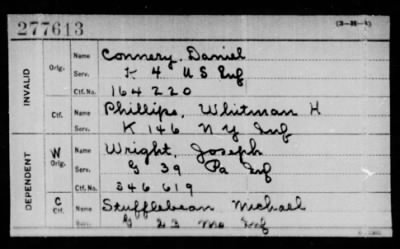 277613 (3-M-1)
INVALID
Orig. Name Connery, Daniel
Serv. K 4 U S Inf
Ctf. No. 164220
Ctf. Name Phillips, Whitman H
K 146 N Y Inf
DEPENDENT
W Orig. Name Wright, Joseph
Serv. G 39 Pa Inf
Ctf. No. 346619
C Ctf. Name Stufflebean Michael
G 23 Mo Inf